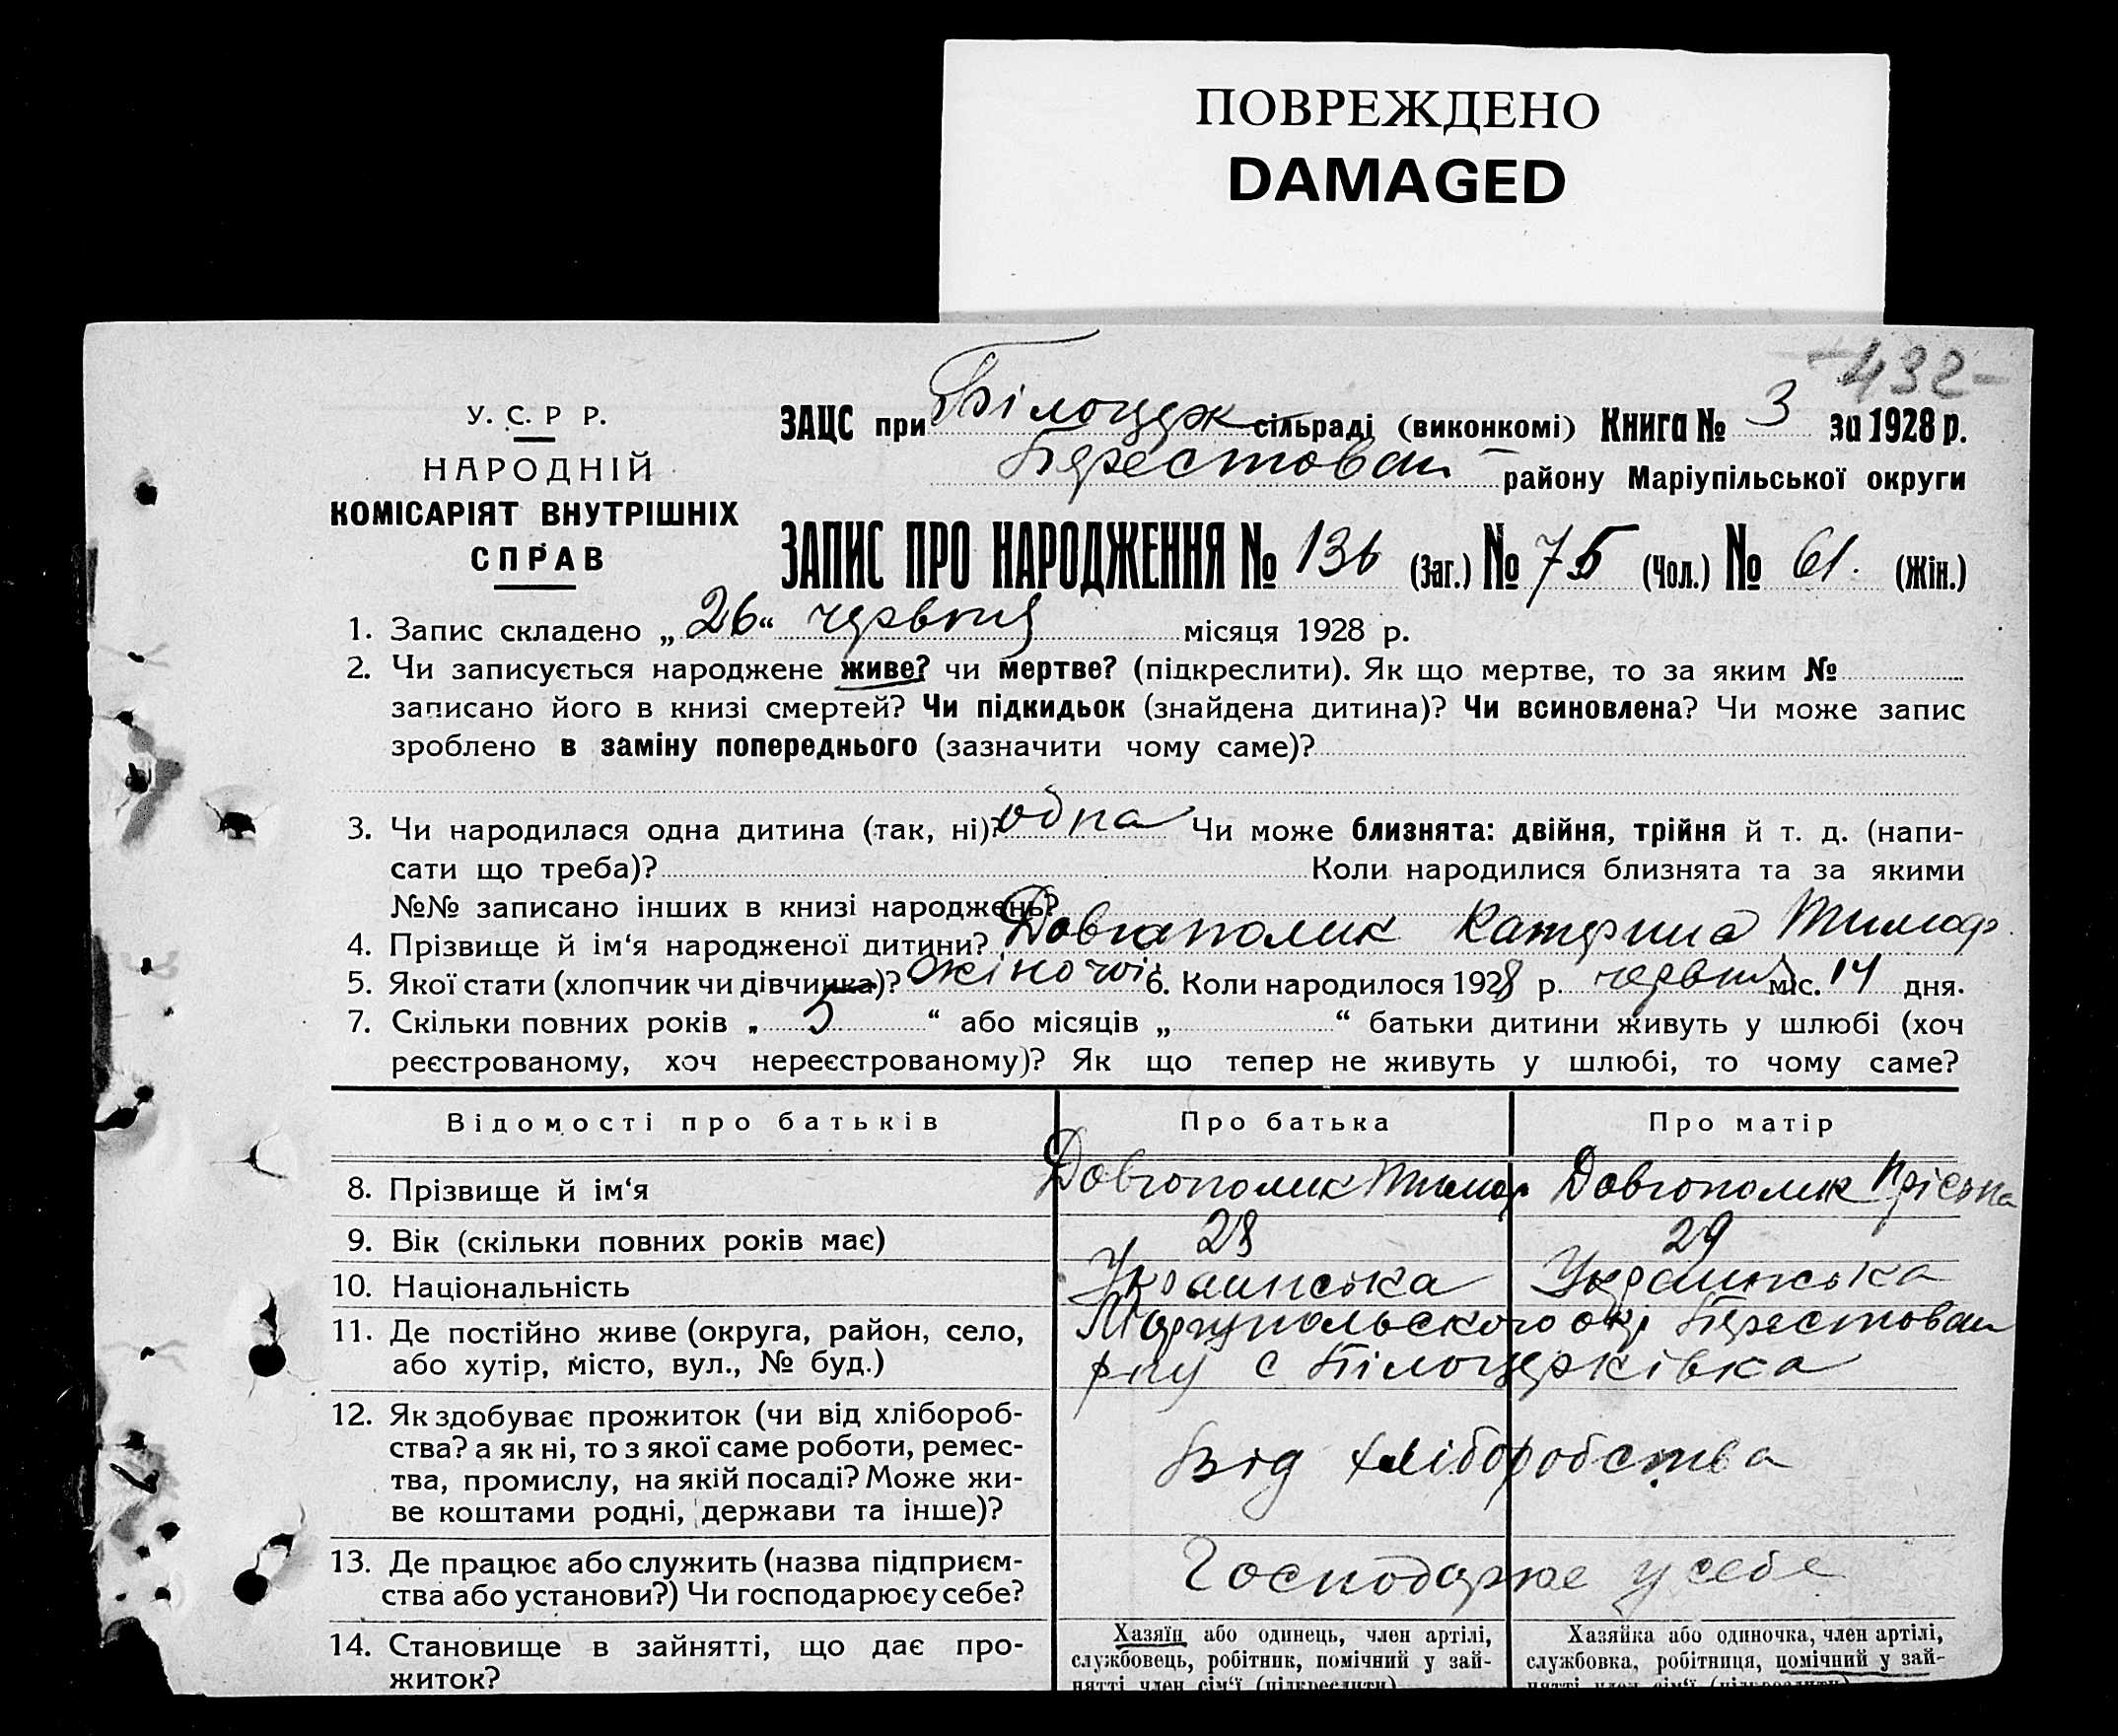 ПОВРЕЖДЕНО
DAMAGED
432-
У. С. Р Р.
НАРОДНІЙ
КОМІСАРІЯТ ВНУТРІШНІХ
СПРАВ
ЗАЦС при Білоцерк сільраді (виконкомі) Книга № 3 за 1928 р.
Берестован району Маріупільської округи
ЗАПИС ПРО НАРОДЖЕННЯ № 136 (Заг.) № 75 (Чол.) № 61. (Жін.)
1. Запис складено „26“ червня місяця 1928 р.
2. Чи записується народжене живе? чи мертве? (підкреслити). Як що мертве, то за яким №
записано його в книзі смертей? Чи підкидьок (знайдена дитина)? Чи всиновлена? Чи може запис
зроблено в заміну попереднього (зазначити чому саме)?
3. Чи народилася одна дитина (так, ні)? одна Чи може близнята: двійня, трійня й т. д. (напи-
сати що треба)? Коли народилися близнята та за якими
№№ записано інших в книзі народжень?
4. Прізвище й ім‘я народженої дитини? Довгаполик Катерина Тимоф.
5. Якої стати (хлопчик чи дівчинка)? жіночої 6. Коли народилося 1928 р. червня міс. 14 дня.
7. Скільки повних років „ 5 “ або місяців „ “ батьки дитини живуть у шлюбі (хоч
реєстрованому, хоч нереєстрованому)? Як що тепер не живуть у шлюбі, то чому саме?
Відомості про батьків Про батька Про матір
8. Прізвище й ім‘я Довгополик Тимоф Довгополик Пріська
9. Вік (скільки повних років має) 28 29
10. Національність Украинська Украинська
11. Де постійно живе (округа, район, село, Маріупольского окр Берестован
або хутір, місто, вул., № буд.) рну с Білоцерківка
12. Як здобуває прожиток (чи від хлібороб-
ства? а як ні, то з якої саме роботи, ремес-
тва, промислу, на якій посаді? Може жи-
ве коштами родні, держави та інше)?
Від хліборобства
13. Де працює або служить (назва підприєм-
ства або установи?) Чи господарює у себе?
Господарює у себе
14. Становище в зайнятті, що дає про-
житок?
Хазяїн або одинець, член артілі,
службовець, робітник, помічний у зай-
нятті член сім‘ї (підкреслити)
Хазяйка або одиночка, член артілі,
службовка, робітниця, помічний у зай-
нятті член сім‘ї (підкреслити)